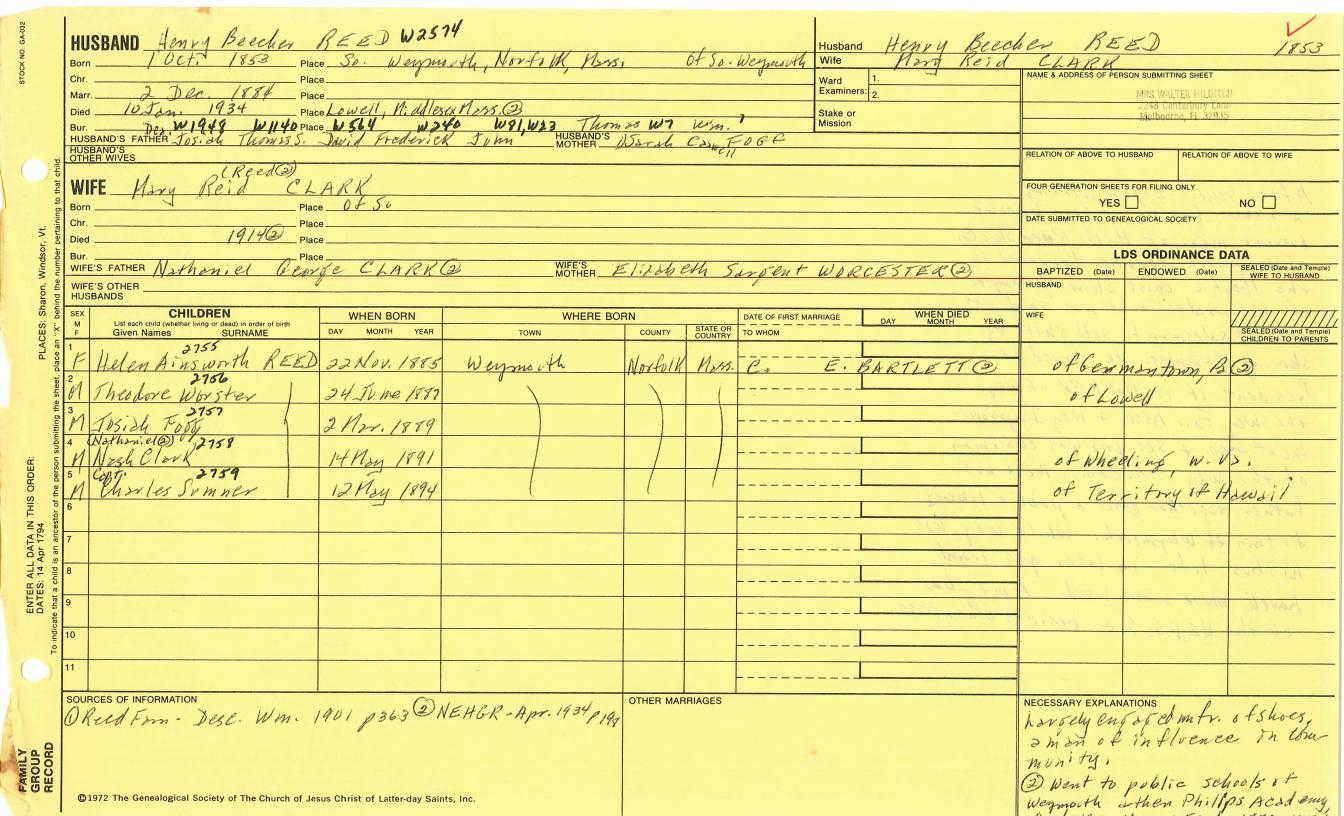 STOCK NO. GA-032
HUSBAND Henry Beecher REED W2574
Born 1 Oct. 1853 Place So. Weymouth, Norfolk, Mass. Of So. Weymouth
Chr. Place
Marr. 2 Dec. 1884 Place
Died 10 Jan. 1934 Place Lowell, Middlesex Mass. ②
Bur. Des. W1948 W1140 Place W564 W240 W81, W23 Thomas W7 Wm. 1
HUSBAND'S FATHER Josiah Thomas S. David Frederick John HUSBAND'S MOTHER Sarah Caswell FOGG
HUSBAND'S OTHER WIVES
(Reed ②)
WIFE Mary Reid CLARK
Born Place Of So
Chr. Place
Died 1914 ② Place
Bur. Place
WIFE'S FATHER Nathaniel George CLARK ② WIFE'S MOTHER Elizabeth Sargent WORCESTER ②
WIFE'S OTHER HUSBANDS
Husband Henry Beecher REED 1853
Wife Mary Reid CLARK
Ward Examiners: 1.
2.
Stake or Mission
NAME & ADDRESS OF PERSON SUBMITTING SHEET
MRS WALTER HILDITCH
2248 Canterbury Lane
Melbourne, FL 32935
RELATION OF ABOVE TO HUSBAND RELATION OF ABOVE TO WIFE
FOUR GENERATION SHEETS FOR FILING ONLY
YES NO
DATE SUBMITTED TO GENEALOGICAL SOCIETY
LDS ORDINANCE DATA
BAPTIZED (Date) ENDOWED (Date) SEALED (Date and Temple) WIFE TO HUSBAND
HUSBAND
WIFE
SEALED (Date and Temple) CHILDREN TO PARENTS
SEX M F CHILDREN WHEN BORN WHERE BORN DATE OF FIRST MARRIAGE WHEN DIED
List each child (whether living or dead) in order of birth
Given Names SURNAME DAY MONTH YEAR TOWN COUNTY STATE OR COUNTRY TO WHOM DAY MONTH YEAR
2755
1 F Helen Ainsworth REED 22 Nov. 1885 Weymouth Norfolk Mass. C. E. BARTLETT ② of Germantown, Pa ②
2756
2 M Theodore Worster 24 June 1887 of Lowell
2757
3 M Josiah Fogg 2 Mar. 1889
(Nathaniel ②) 2758
4 M Nash Clark 14 May 1891 of Wheeling, W. Va.
Capt. 2759
5 M Charles Sumner 12 May 1894 of Territory of Hawaii
6
7
8
9
10
11
SOURCES OF INFORMATION
① Reed Fam - Desc. Wm. 1901 p363 ② NEHGR - Apr. 1934 p197
OTHER MARRIAGES
NECESSARY EXPLANATIONS
Largely engaged mfr. of shoes,
a man of influence in com-
munity.
② Went to public schools of
Weymouth & then Phillips Academy,
©1972 The Genealogical Society of The Church of Jesus Christ of Latter-day Saints, Inc.
FAMILY GROUP RECORD
ENTER ALL DATA IN THIS ORDER:
DATES: 14 Apr 1794
PLACES: Sharon, Windsor, Vt.
To indicate that a child is an ancestor of the person submitting the sheet, place an "X" behind the number pertaining to that child.